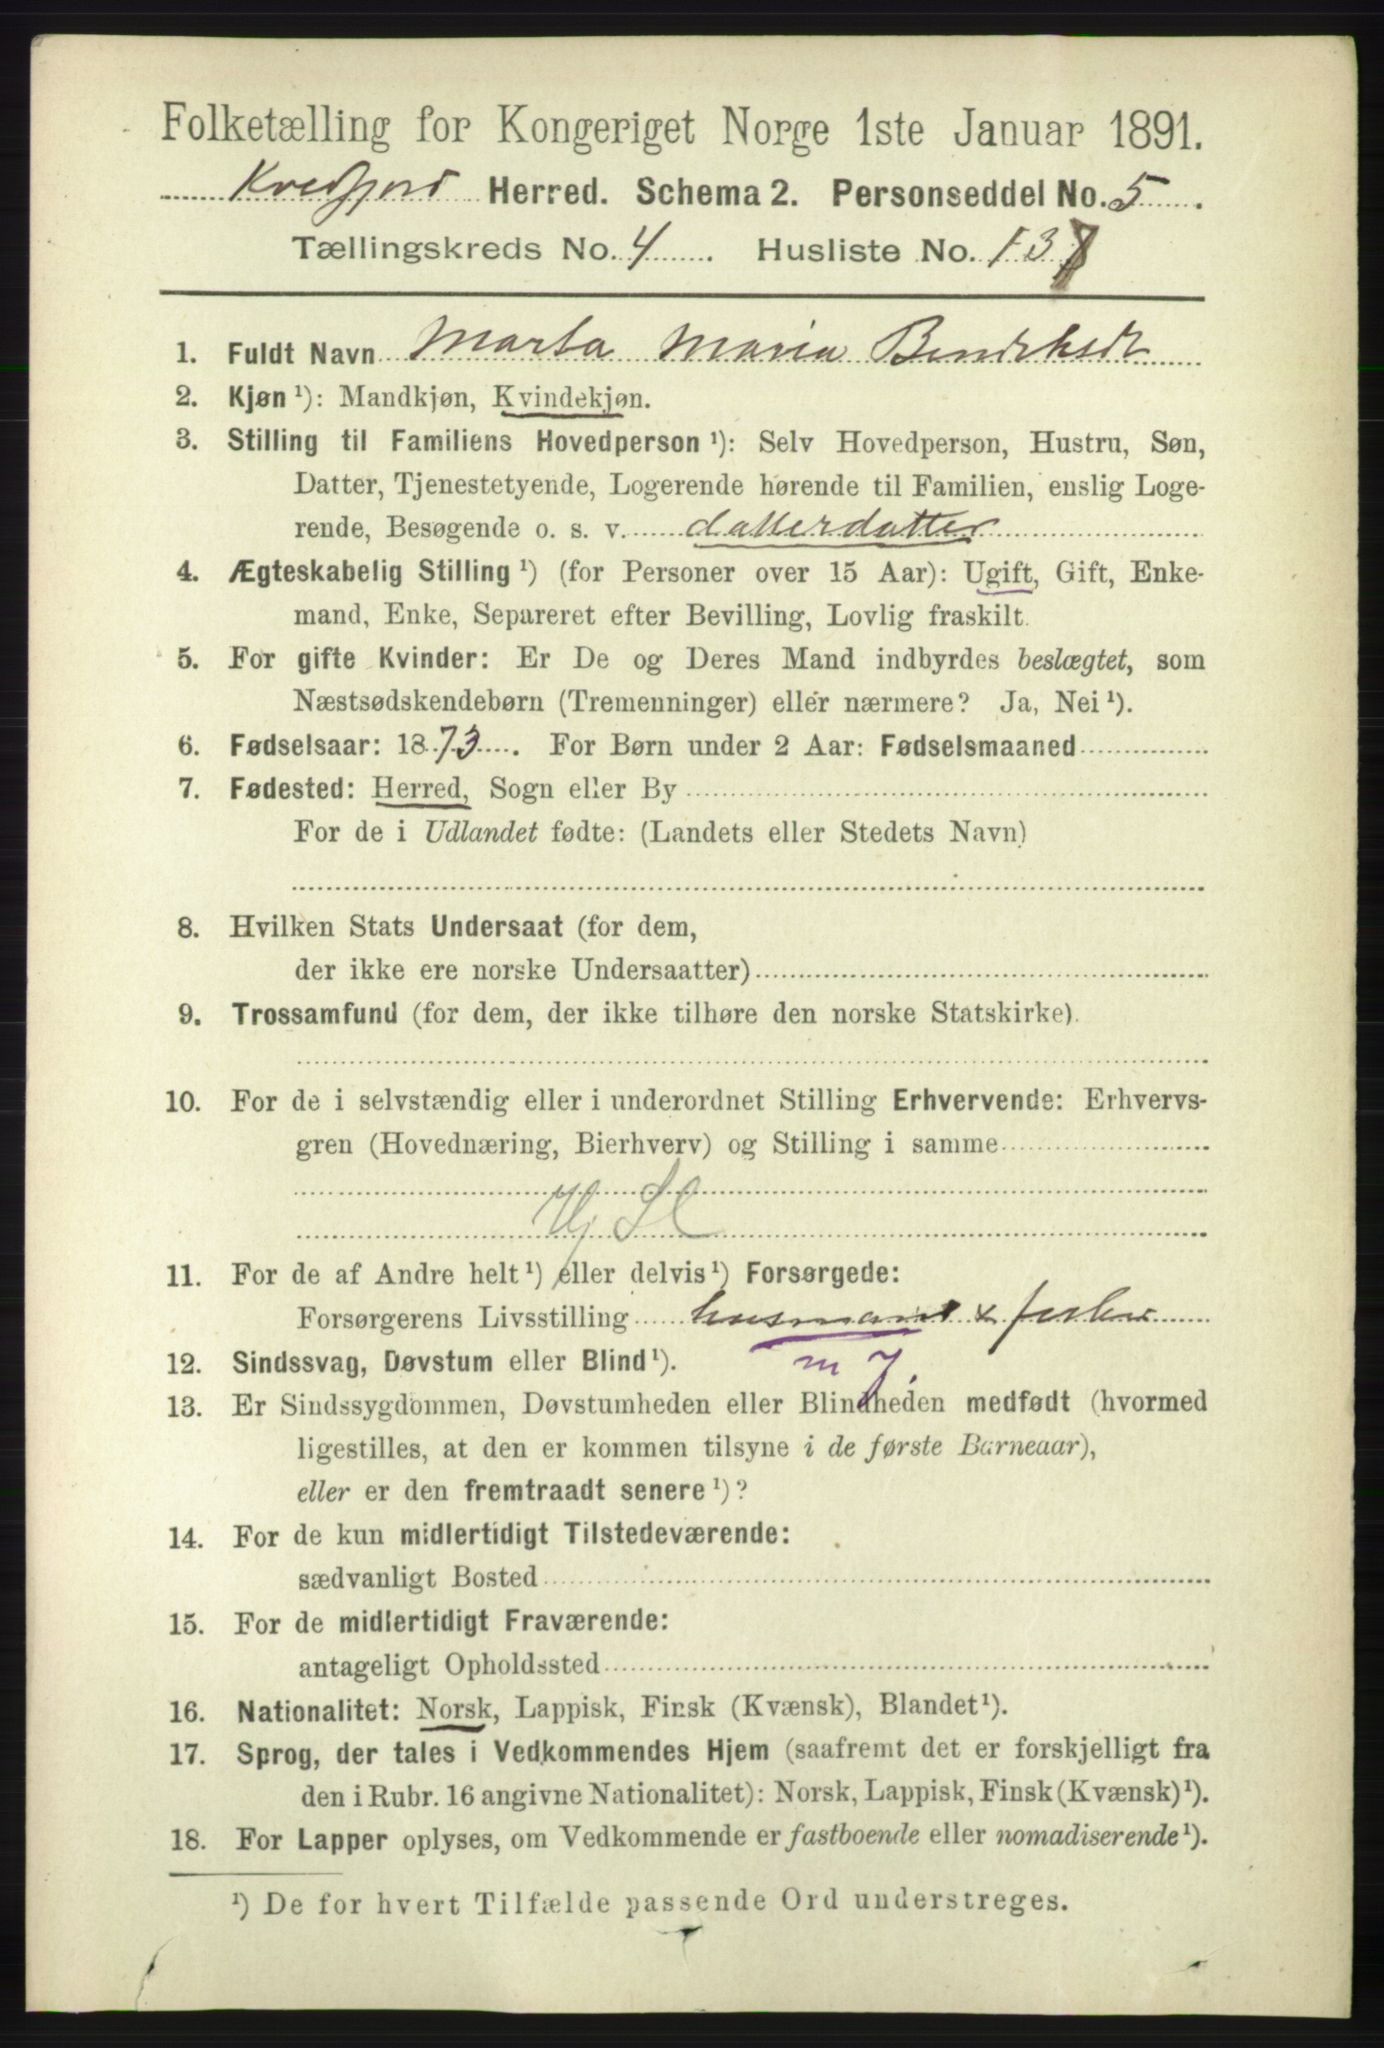 Folketælling for Kongeriget Norge 1ste Januar 1891.
Kvedfjord Herred. Schema 2. Personseddel No. 5.
Tællingskreds No. 4. Husliste No. 137
1. Fuldt Navn Marta Maria
2. Kjøn ¹): Mandkjøn, Kvindekjøn.
3. Stilling til Familiens Hovedperson ¹): Selv Hovedperson, Hustru, Søn,
Datter, Tjenestetyende, Logerende hørende til Familien, enslig Loge-
rende, Besøgende o. s. v. datterdatter
4. Ægteskabelig Stilling ¹) (for Personer over 15 Aar): Ugift, Gift, Enke-
mand, Enke, Separeret efter Bevilling, Lovlig fraskilt.
5. For gifte Kvinder: Er De og Deres Mand indbyrdes beslægtet, som
Næstsødskendebørn (Tremenninger) eller nærmere? Ja, Nei ¹).
6. Fødselsaar: 1873. For Børn under 2 Aar: Fødselsmaaned
7. Fødested: Herred, Sogn eller By
For de i Udlandet fødte: (Landets eller Stedets Navn)
8. Hvilken Stats Undersaat (for dem,
der ikke ere norske Undersaatter)
9. Trossamfund (for dem, der ikke tilhøre den norske Statskirke).
10. For de i selvstændig eller i underordnet Stilling Erhvervende: Erhvervs-
gren (Hovednæring, Bierhverv) og Stilling i samme
11. For de af Andre helt ¹) eller delvis ¹) Forsørgede:
Forsørgerens Livsstilling husmand & fisker
m J.
12. Sindssvag, Døvstum eller Blind ¹).
13. Er Sindssygdommen, Døvstumheden eller Blindheden medfødt (hvormed
ligestilles, at den er kommen tilsyne i de første Barneaar),
eller er den fremtraadt senere ¹)?
14. For de kun midlertidigt Tilstedeværende:
sædvanligt Bosted
15. For de midlertidigt Fraværende:
antageligt Opholdssted
16. Nationalitet: Norsk, Lappisk, Finsk (Kvænsk), Blandet ¹).
17. Sprog, der tales i Vedkommendes Hjem (saafremt det er forskjelligt fra
den i Rubr. 16 angivne Nationalitet): Norsk, Lappisk, Finsk (Kvænsk) ¹).
18. For Lapper oplyses, om Vedkommende er fastboende eller nomadiserende ¹).
¹) De for hvert Tilfælde passende Ord understreges.